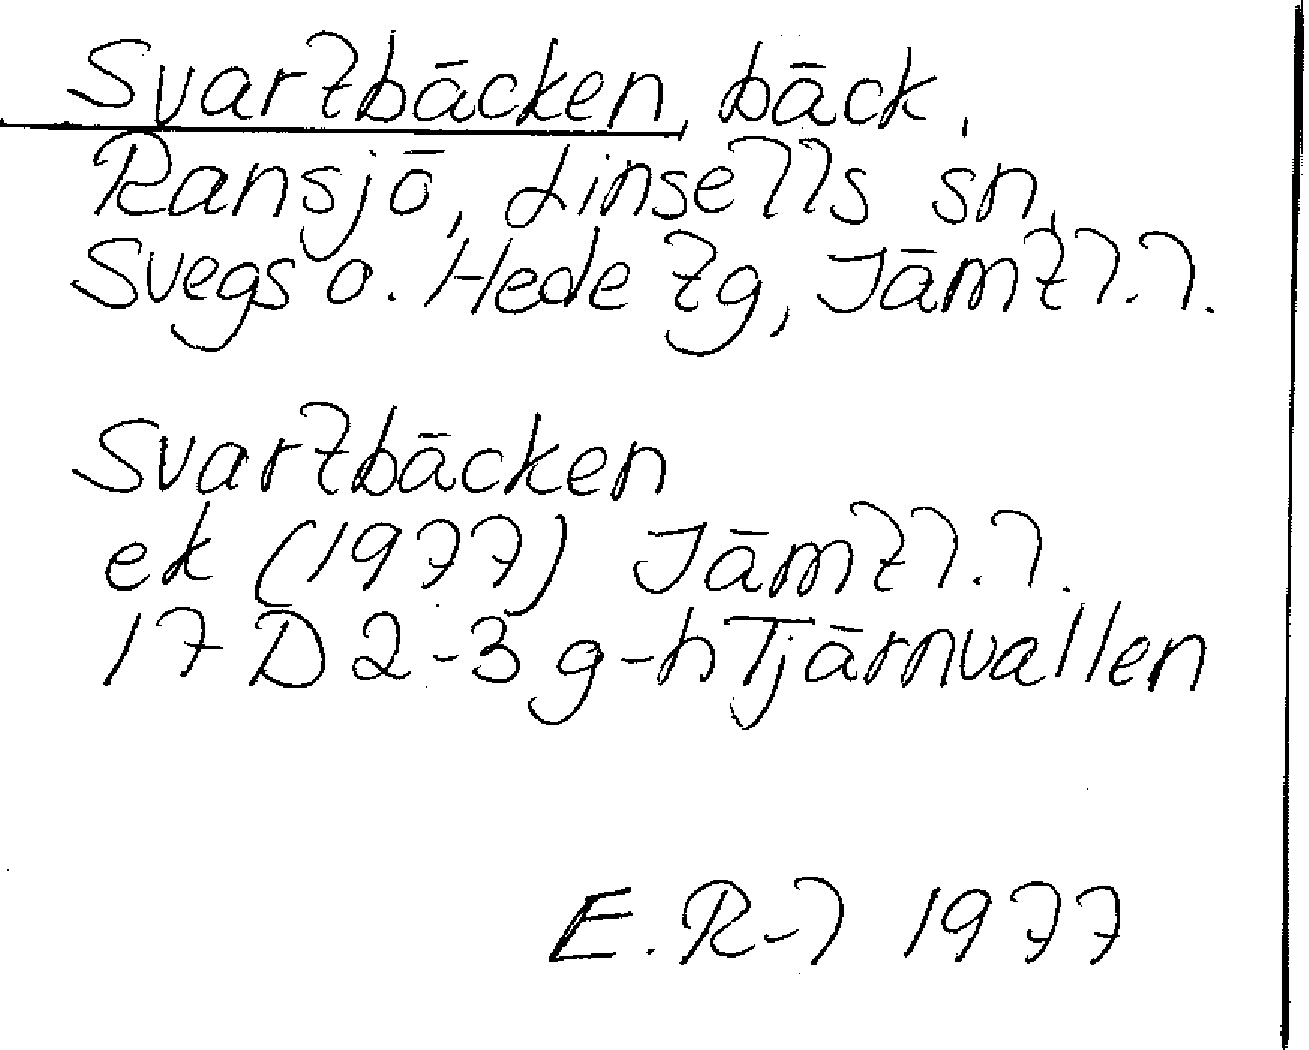 Svartbäcken, bäck,
Ransjö, Linsells sn,
Svegs o. Hede tg, Jämtl.l.
Svartbäcken
ek (1977) Jämtl.l.
17 D 2-3 g-h Tjärnvallen
E. R-l 1977